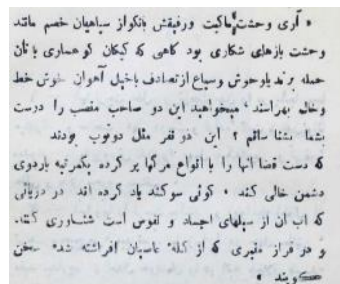 « آری وحشت ماکیت ورفیقش بانکواز سپاهیان خصم مانند
وحشت بازهای شکاری بود کاهی که کبکان کوهساری بآنان
حمله برند یا وحوش وسباع از تصادف با خیل آهوان خوش خط
وخال بهراسند . میخواهید این دو صاحب منصب را درست
بشما بشناسانم ؟ این دو نفر مثل دو توپ بودند
که دست قضا آنها را با انواع مرکها پر کرده یکمرتبه باردوی
دشمن خالی کند . کوئی سوکند یاد کرده اند در دریائی
که آب آن از سیلهای اجساد و نفوس است شنـاوری کنند.
و در فراز منبری که از کله عاصیان افراشته شده سخن
کویند »